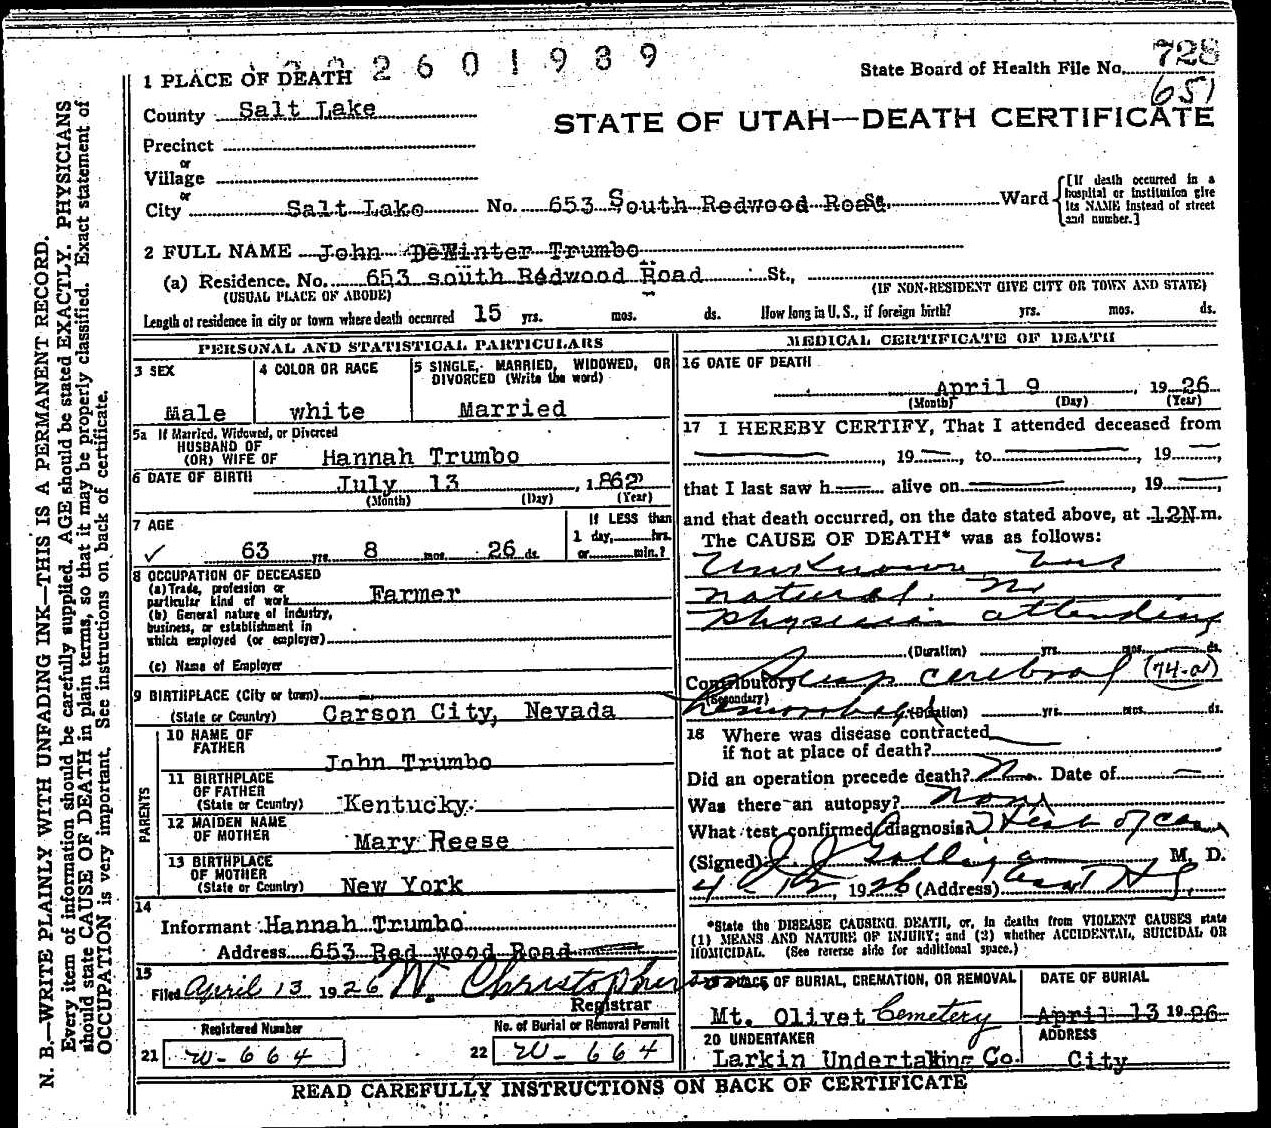 2601989
State Board of Health File No. 728
651
STATE OF UTAH—DEATH CERTIFICATE
1 PLACE OF DEATH
County Salt Lake
Precinct
or
Village
or
City Salt Lake No. 653 South Redwood Road St. Ward
[If death occurred in a hospital or institution give its NAME instead of street and number.]
2 FULL NAME John DeWinter Trumbo
(a) Residence. No. 653 south Redwood Road St.,
(USUAL PLACE OF ABODE) (IF NON-RESIDENT GIVE CITY OR TOWN AND STATE)
Length of residence in city or town where death occurred 15 yrs. mos. ds. How long in U. S., if foreign birth? yrs. mos. ds.
PERSONAL AND STATISTICAL PARTICULARS
3 SEX
Male
4 COLOR OR RACE
white
5 SINGLE, MARRIED, WIDOWED, OR
DIVORCED (Write the word)
Married
5a If Married, Widowed, or Divorced
HUSBAND OF
(OR) WIFE OF Hannah Trumbo
6 DATE OF BIRTH July 13, 1862
(Month) (Day) (Year)
7 AGE
63 yrs. 8 mos. 26 ds.
If LESS than
1 day, hrs.
or min.?
8 OCCUPATION OF DECEASED
(a) Trade, profession or
particular kind of work Farmer
(b) General nature of industry,
business, or establishment in
which employed (or employer)
(c) Name of Employer
9 BIRTHPLACE (City or town)
(State or Country) Carson City, Nevada
PARENTS
10 NAME OF
FATHER John Trumbo
11 BIRTHPLACE
OF FATHER
(State or Country) Kentucky
12 MAIDEN NAME
OF MOTHER Mary Reese
13 BIRTHPLACE
OF MOTHER
(State or Country) New York
14
Informant Hannah Trumbo
Address 653 Red wood Road
15
Filed April 13 1926 W. Christopherson
Registrar
Registered Number No. of Burial or Removal Permit
21 W-664 22 W-664
MEDICAL CERTIFICATE OF DEATH
16 DATE OF DEATH
April 9, 1926
(Month) (Day) (Year)
17 I HEREBY CERTIFY, That I attended deceased from
, 19 , to , 19 ,
that I last saw h alive on , 19 ,
and that death occurred, on the date stated above, at 12N m.
The CAUSE OF DEATH* was as follows:
Unknown but
natural. No
physician attending
(Duration) yrs. mos. ds.
Contributory cerebral (74-a)
(Secondary) hemorrhage (Duration) yrs. mos. ds.
18 Where was disease contracted
if not at place of death?
Did an operation precede death? No Date of
Was there an autopsy? None
What test confirmed diagnosis? Hist of case
(Signed) M. D.
4-12, 1926 (Address)
*State the DISEASE CAUSING DEATH, or, in deaths from VIOLENT CAUSES state
(1) MEANS AND NATURE OF INJURY; and (2) whether ACCIDENTAL, SUICIDAL OR
HOMICIDAL. (See reverse side for additional space.)
PLACE OF BURIAL, CREMATION, OR REMOVAL
Mt. Olivet Cemetery
DATE OF BURIAL
April 13 1926
20 UNDERTAKER
Larkin Undertaking Co.
ADDRESS
City
READ CAREFULLY INSTRUCTIONS ON BACK OF CERTIFICATE
N. B.—WRITE PLAINLY WITH UNFADING INK—THIS IS A PERMANENT RECORD.
Every item of information should be carefully supplied. AGE should be stated EXACTLY. PHYSICIANS
should state CAUSE OF DEATH in plain terms, so that it may be properly classified. Exact statement of
OCCUPATION is very important. See instructions on back of certificate.